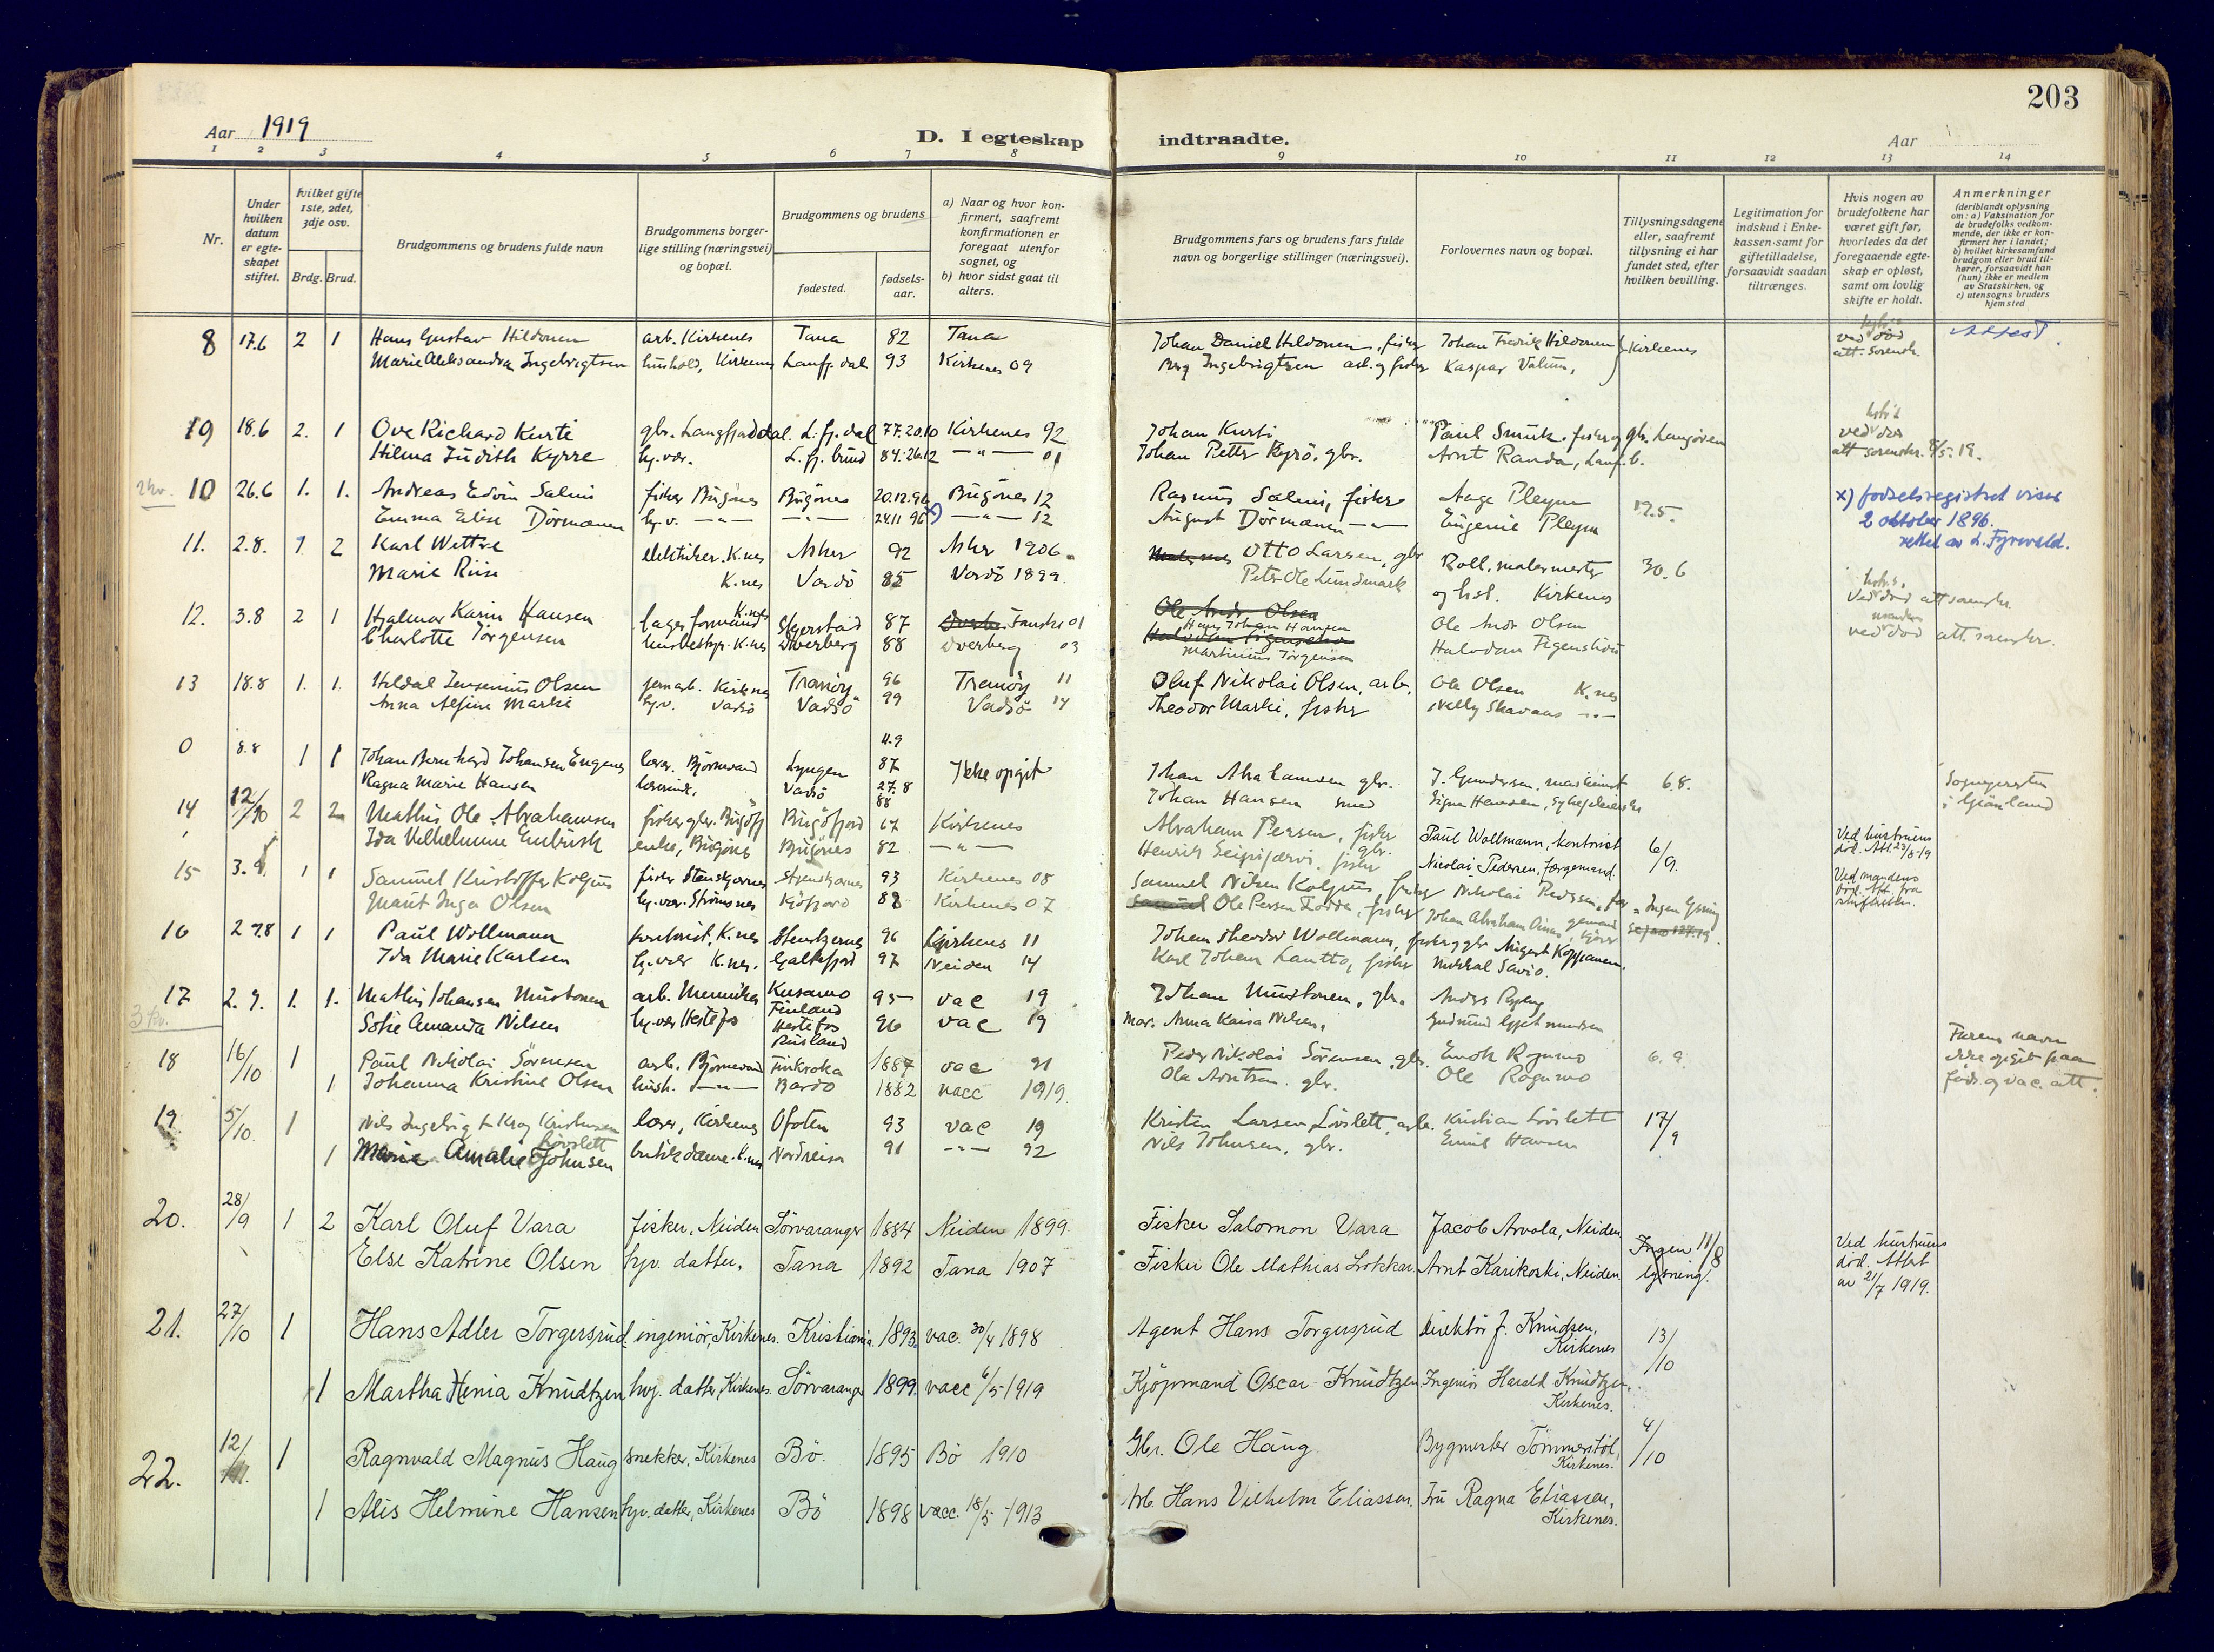 203
Aar 1919
D. I egteskap indtraadte.
Aar
1 2 3 4 5 6 7 8 9 10 11 12 13 14
Nr.
Under hvilken datum er egte-skapet stiftet.
hvilket gifte 1ste, 2det, 3dje osv.
Brdg. Brud.
Brudgommens og brudens fulde navn
Brudgommens borger-lige stilling (næringsvei) og bopæl.
Brudgommens og brudens
fødested.
fødsels-aar.
a) Naar og hvor kon-firmert, saafremt konfirmationen er foregaat utenfor sognet, og
b) hvor sidst gaat til alters.
Brudgommens fars og brudens fars fulde navn og borgerlige stillinger (næringsvei).
Forlovernes navn og bopæl.
Tillysningsdagene eller, saafremt tillysning ei har fundet sted, efter hvilken bevilling.
Legitimation for indskud i Enke-kassen samt for giftetilladelse, forsaavidt saadan tiltrænges.
Hvis nogen av brudefolkene har været gift før, hvorledes da det foregaaende egte-skap er opløst, samt om lovlig skifte er holdt.
Anmerkninger
(deriblandt oplysning om: a) Vaksination for de brudefolks vedkom-mende, der ikke er kon-firmert her i landet; b) hvilket kirkesamfund brudgom eller brud til-hører, forsaavidt han (hun) ikke er medlem av Statskirken, og c) utensogns bruders hjemsted
8 17.6 2 1 Hans Gustav Hildonen arb. Kirkenes Tana 82 Tana Johan Daniel Hildonen, fisker Johan Fredrik Hildonen Kirkenes ved død att. sorenskr. Attest.
Marie Aleksandra Ingebrigtsen hushold, Kirkenes Langfj.dal 93 Kirkenes 09 Ingebrigtsen arb. og fisker Kaspar
9 18.6 2. 1 Ove Richard Kurti gbr. Langfjorddal L.fj.dal 77.20.10 Kirkenes 92 Johan Kurti Paul Smuk. fisker og gbr. ved død
Hilma Judith Kyrre hj.vær. L.fj.bund 84.26.12 —"— 01 Johan Petter Kyrö. gbr. Arnt Randa, Langf.b. att sorenskr. 8/5.19.
2 kv. 10 26.6 1. 1. Andreas Edvin Salmi fisker Bugönes Bugönes 20.12.96 Bugönes 12 Rasmus Salmi, fisker Aage Pleym 12.5. x) fødselsregistret viser
Emma Elise Dörmænen hj.v. —"— —"— 24.11 96 x) —"— 12 August Dörmænen —"— Eugenie Pleym 2 oktober 1896.
rettet av L. Fyrwald.
11. 2.8. 1 2 Karl Wettre elektriker. K.nes Asker 92 Asker 1906. Otto Larsen, gbr Boll. malermester 30.6
Marie Riise K.nes Vardö 85 Vardö 1899. Peter Ole Lundmark og hst. Kirkenes Ved død att sorenskr.
12. 3.8 2 1 Hjalmar Karin Hansen lagerformand K.nes Skjerstad 87 Fauske 01 Ole Andr Olsen Hans Johan Hansen Ole Andr Olsen
Charlotte Jörgensen husbestyr. K.nes Dverberg 88 Dverberg 03 Martinius Jörgensen Halvdan Figenschou ved død att. sorenskr.
13 18.8 1. 1. Hildal Jensenius Olsen jernarb. Kirkenes Tranöy 96 Tranöy 11 Oluf Nikolai Olsen, arb. Ole Olsen K.nes
Anna Alfine Marki hj.v. Vadsö Vadsö 99 Vadsö 14 Theodor Marki, fisker Nelly Skavaas —"—
0 8.8 1 1 Johan Bernhard Johansen Engenes lærer. Björnevand Lyngen 4.9 87 Ikke opgit Johan Abrahamsen gbr. J. Gundersen, maskinist 6.8. Sogneprest
Ragna Marie Hansen lærerinde. Vadsö 27.8 88 Johan Hansen smed Signe Hansen, sykepleierske i Grönland
14 12/10 2 2 Mathis Ole Abrahamsen fisker gbr. Bugöfj Bugöfjord 67 Kirkenes Abraham Persen, fisker gbr. Paul Wollmann, kontorist 6/9. Ved hustruens död. Att 23/8-19
Ida Vilhelmine enke, Bugönes Bugönes 82 —"— Henrik Seipijærvi. fisker Nicolai Pedersen, færgemand. Ved mandens död. Att. fra skifteretten.
15 3.9 1 1 Samuel Kristoffer Koljus fisker Stenskjernes Stenskjernes 93 Kirkenes 08 Samuel Nilsen Koljus, fisker Nikolai Pedersen, Ingen lysning
Marit Inga Olsen hj.vær. Strömsnes Kjöfjord 88 Kirkenes 07 Ole Persen Fodda, fisker Johan Abraham
16 27.8 1 1 Paul Wollmann kontorist, K.nes Stenskjernes 96 Kirkenes 11 Johan Theodor Wollmann, fisker, gbr August Kopjanen.
Ida Marie Karlsen hj.vær K.nes. Galtefjord 97 Neiden 14 Karl Johan Lantto, fisker Mikkal Savio.
17 2.9. 1. 1. Mathis Johansen Mustonen arb. Munnikes Kusamo Finland 95 vac 19 Johan Mustonen, gbr. Anders
3 kv. Sofie Amanda Nilsen hj.vær Hestefos Hestefos Rusland 96 vac 19 Mor. Anna Kaisa Nilsen, Gudmund Gjetmundsen
18 16/10 1 Paul Nikolai Sörensen arb. Björnevand Finkroka 1887 vac 91 Peder Nikolai Sörensen, gbr. Enok Rognmo 6.9. Farens navn
1 Johanna Kristine Olsen hush. —"— Bardo 1882 vacc 1919. Ole Arntsen. gbr. Ole Rognmo ikke opgit paa föds. og vac. att.
19. 5/10. 1 Nils Ingebrigt Krog Kristensen Lövslett lærer, Kirkenes Ofoten 93 vac 19 Kristen Larsen Lövslett, arb. Kristian Lövslett 17/9
1 Marie Amalie Johnsen butikdame. K.nes Nordreisa 91 —"— 92 Nils Johnsen, gbr. Emil Hansen
20. 28/9 1 2 Karl Oluf Vara fisker, Neiden Sörvaranger 1884 Neiden 1899. Fisker Salomon Vara Jacob Arvola, Neiden Ingen 11/8 Ved hustruens
Else Katrine Olsen hjv. datter. Tana 1892 Tana 1907 Fisker Ole Mathias Lokkar. Arnt Karikoski, Neiden. lysning. död. Attest av 21/7 1919.
21. 27/10 1 Hans Adler Torgersrud ingeniör, Kirkenes. Kristiania. 1893. vac. 30/4 1898 Agent Hans Torgersrud Direktör J. Knudsen, Kirkenes 13/10
1 Martha Henia Knudtzen hvj. datter, Kirkenes. Sörvaranger 1899. vacc 6/5-1919 Kjöpmand Oscar Knudtzen Ingeniör Harald Knudtzen, Kirkenes.
22. 12/ 1 Ragnvald Magnus Haug snekker, Kirkenes Bö. 1895 Bö 1910 Gbr. Ole Haug. Bygmester Tömmerstöl, Kirkenes. 4/10
1 Alis Helmine Hansen hjv. datter, Kirkenes Bö 1898 vacc. 18/5-1913 Arb. Hans Vilhelm Eliassen. Fru Ragna Eliassen, Kirkenes.